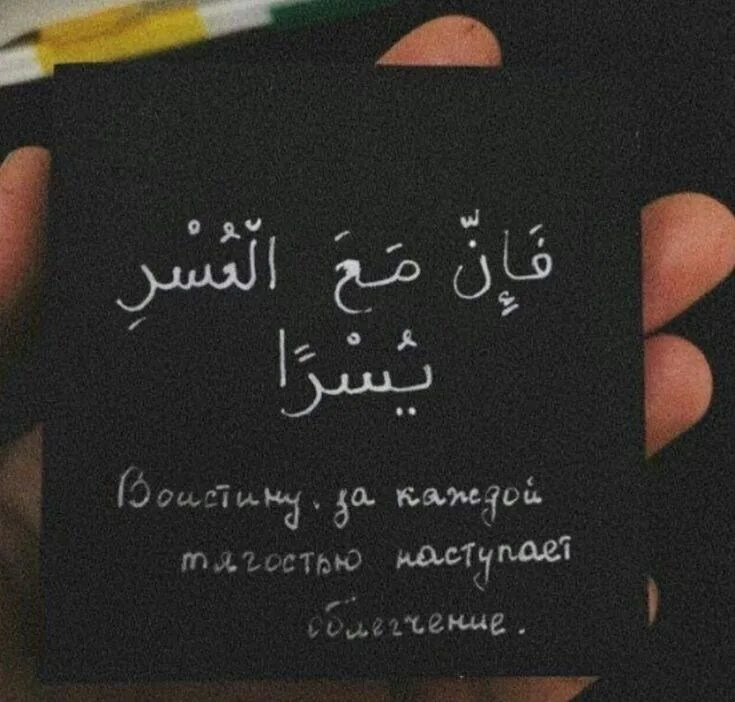 فَإِنّ مَعَ الْعُسْرِ
يُسْرًا
Воистину, за каждой
тягостью наступает
облегчение.